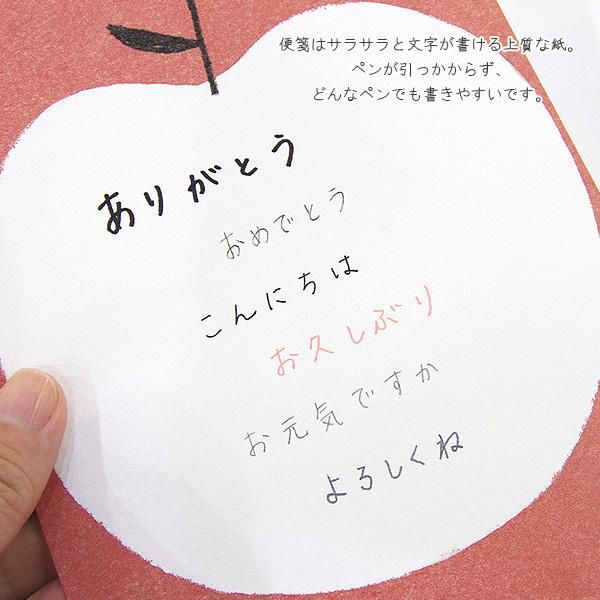 便箋はサラサラと文字が書ける上質な紙。
ペンが引っかからず、
どんなペンでも書きやすいです。
ありがとう
おめでとう
こんにちは
お久しぶり
お元気ですか
よろしくね